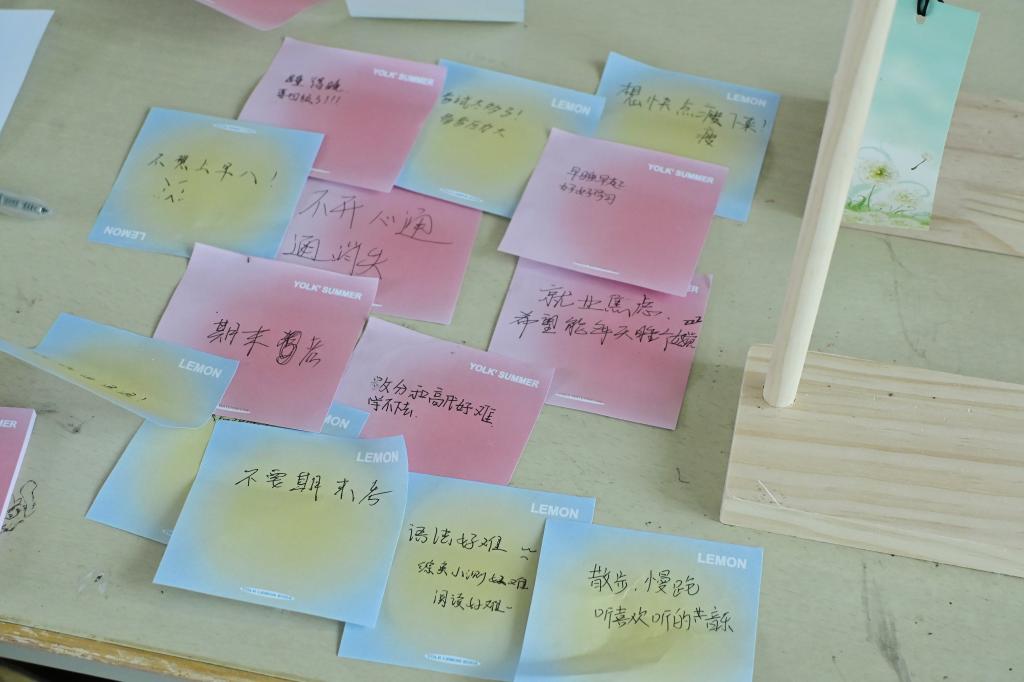 YOLK' SUMMER
LEMON
考试太多了!
LEMON
想快点瘦下来!
瘦
YOLK' SUMMER
早睡早起
好好学习
不想上早八!
LEMON
不开心通
通消失
YOLK' SUMMER
期末
YOLK' SUMMER
数分和高代好难
学不下去.
就业焦虑.
希望能每天睡
zzz
LEMON
LEMON
不要期末考
YOLK LEMON
LEMON
语法好难
小测好难
阅读好难~
LEMON
散步.慢跑
听喜欢听的音乐